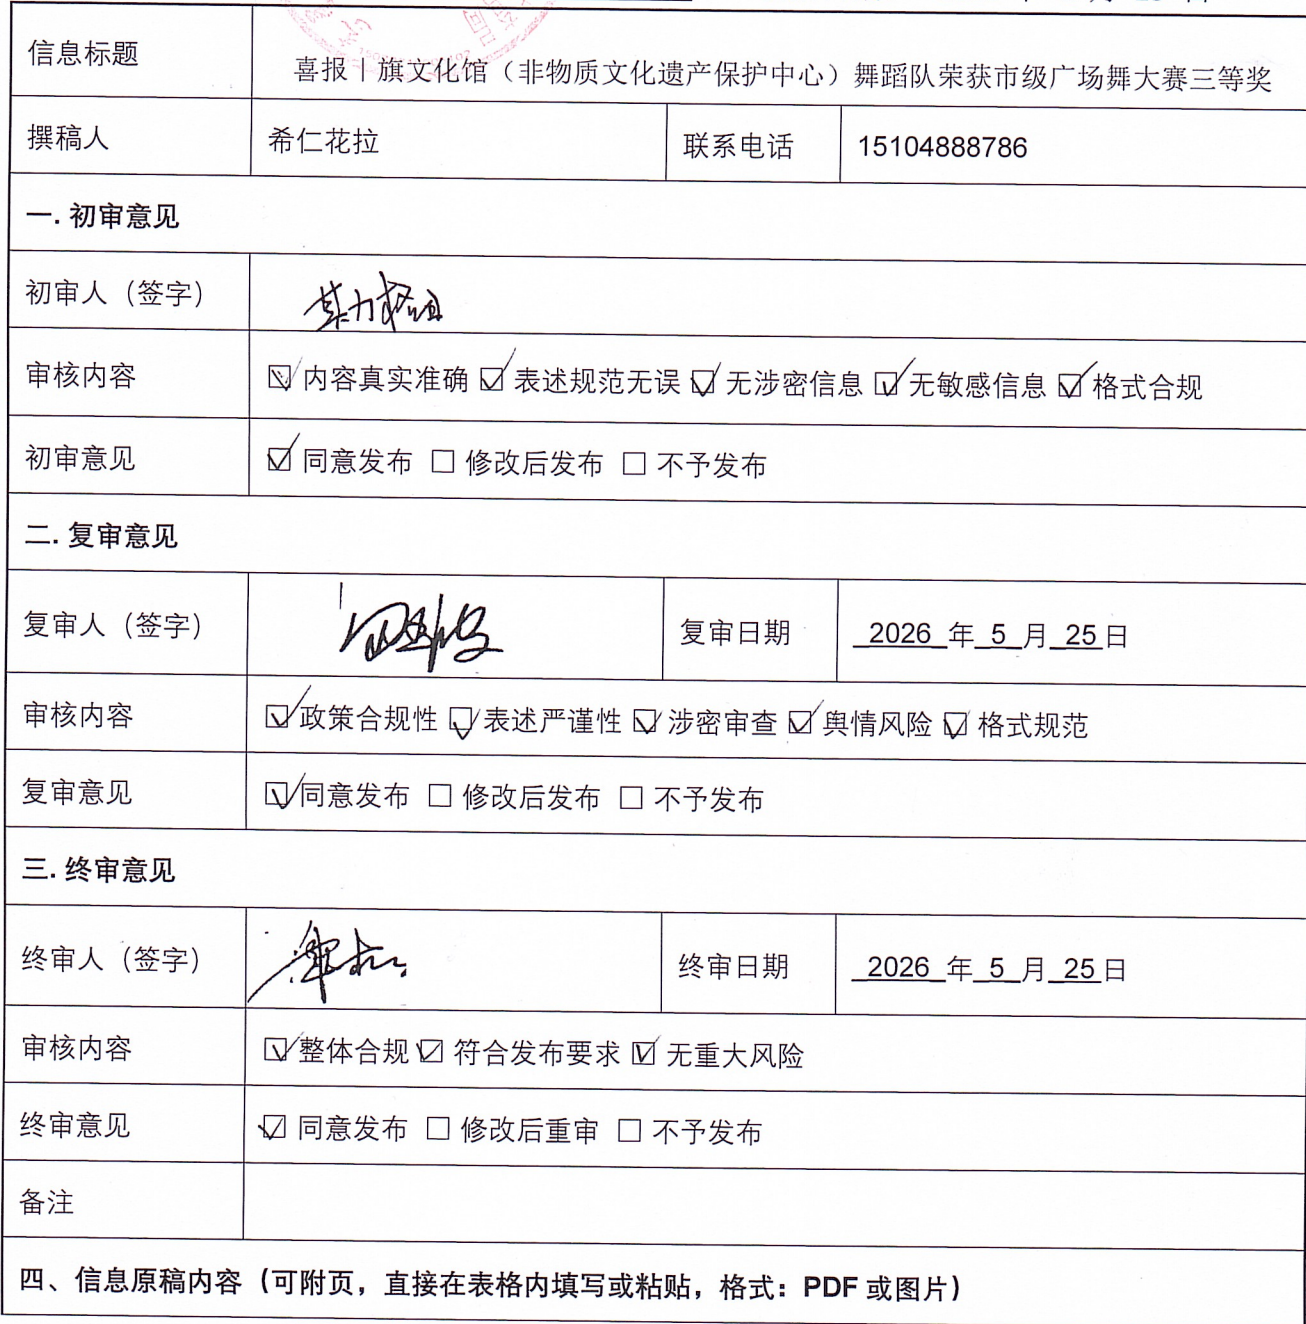 信息标题 喜报丨旗文化馆（非物质文化遗产保护中心）舞蹈队荣获市级广场舞大赛三等奖
撰稿人 希仁花拉 联系电话 15104888786
一. 初审意见
初审人（签字）
审核内容 ☑内容真实准确 ☑表述规范无误 ☑无涉密信息 ☑无敏感信息 ☑格式合规
初审意见 ☑同意发布 □修改后发布 □不予发布
二. 复审意见
复审人（签字） 复审日期 2026 年 5 月 25 日
审核内容 ☑政策合规性 ☑表述严谨性 ☑涉密审查 ☑舆情风险 ☑格式规范
复审意见 ☑同意发布 □修改后发布 □不予发布
三. 终审意见
终审人（签字） 终审日期 2026 年 5 月 25 日
审核内容 ☑整体合规 ☑符合发布要求 ☑无重大风险
终审意见 ☑同意发布 □修改后重审 □不予发布
备注
四、信息原稿内容（可附页，直接在表格内填写或粘贴，格式：PDF 或图片）